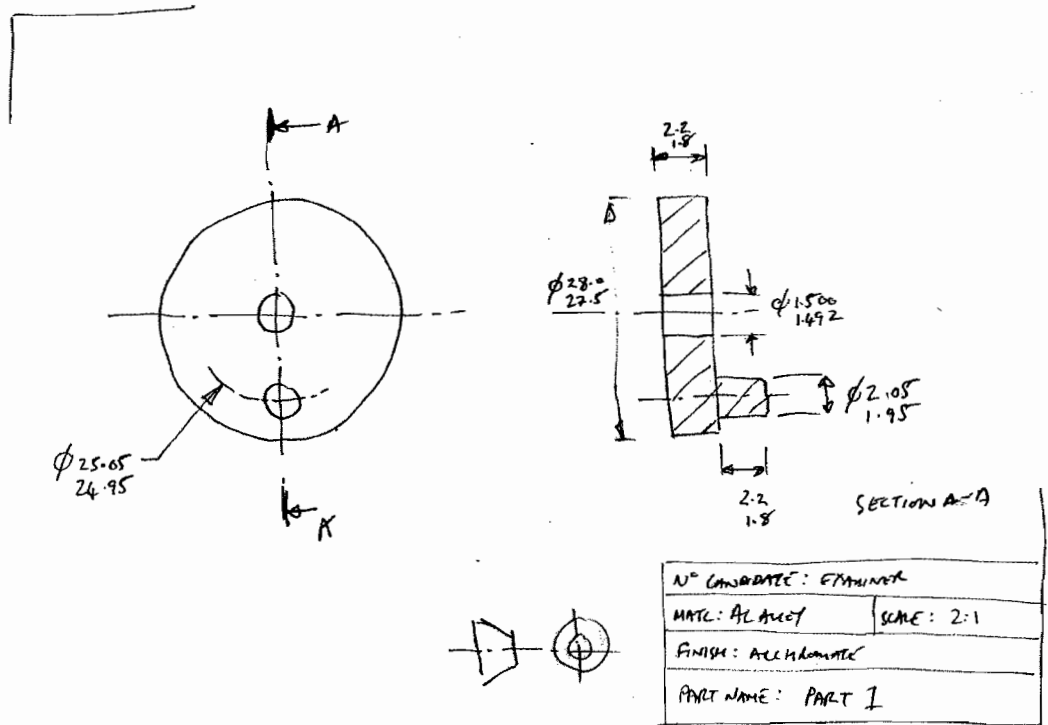 A
2.2
1.8
φ28.0
27.5
φ1.500
1.492
φ25.05
24.95
φ2.05
1.95
A
2.2
1.8
SECTION A-A
Nº CANDIDATE: EXAMINER
MATL: AL ALLOY
SCALE: 2:1
FINISH: ALCHROMATE
PART NAME: PART 1